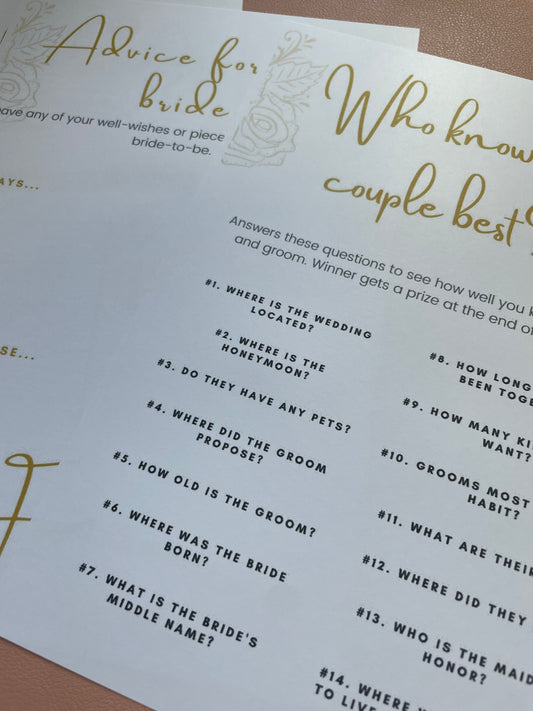 Advice for
bride
any of your well-wishes or
bride-to-be.
...
...
Who
couple best?
Answers these questions to see how well you
and groom. Winner gets a prize at the end of
#1. WHERE IS THE WEDDING
LOCATED?
#2. WHERE IS THE
HONEYMOON?
#3. DO THEY HAVE ANY PETS?
#4. WHERE DID THE GROOM
PROPOSE?
#5. HOW OLD IS THE GROOM?
#6. WHERE WAS THE BRIDE
BORN?
#7. WHAT IS THE BRIDE'S
MIDDLE NAME?
#8. HOW LONG
BEEN
#9. HOW MANY
WANT?
#10. GROOMS MOST
HABIT?
#11. WHAT ARE THEIR
#12. WHERE DID THEY
#13. WHO IS THE MAID
HONOR?
#14. WHERE
TO LIVE